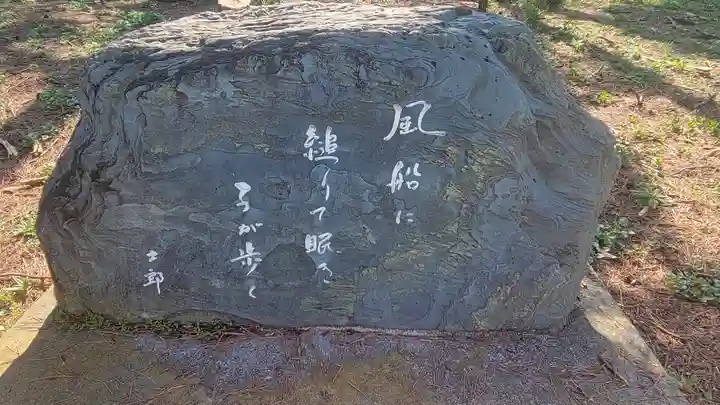 風船に
縋りて眠き
子が歩く
士郎